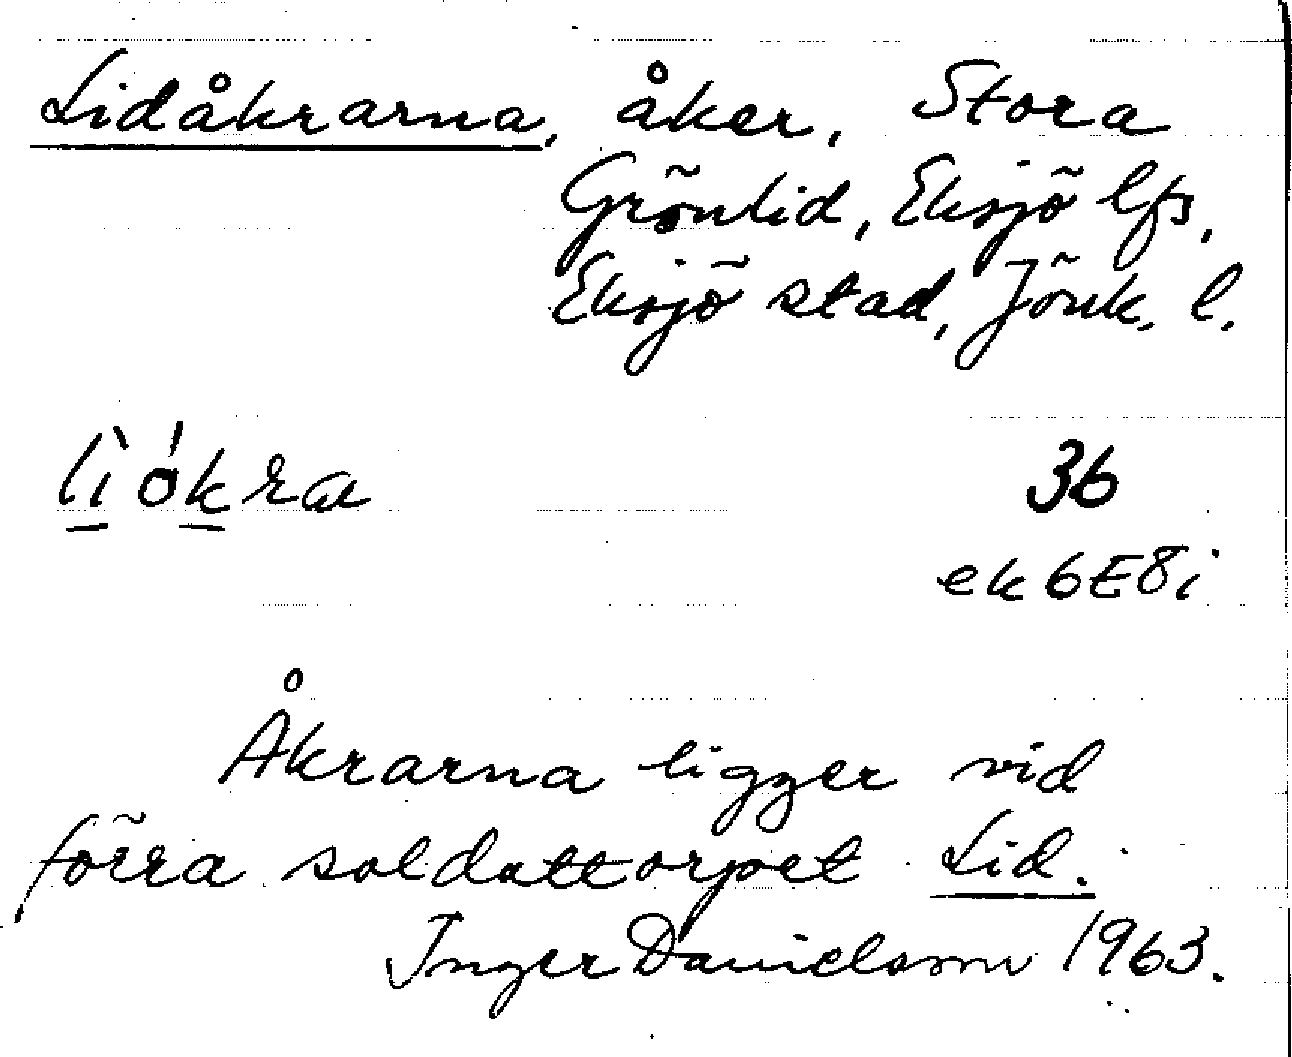 Lidåkrarna, åker, Stora
Grönlid, Eksjö lfs,
Eksjö stad, Jönk. l.
lì ókra
36
ek 6E8i
Åkrarna ligger vid
förra soldattorpet Lid.
Inger Danielsson 1963.